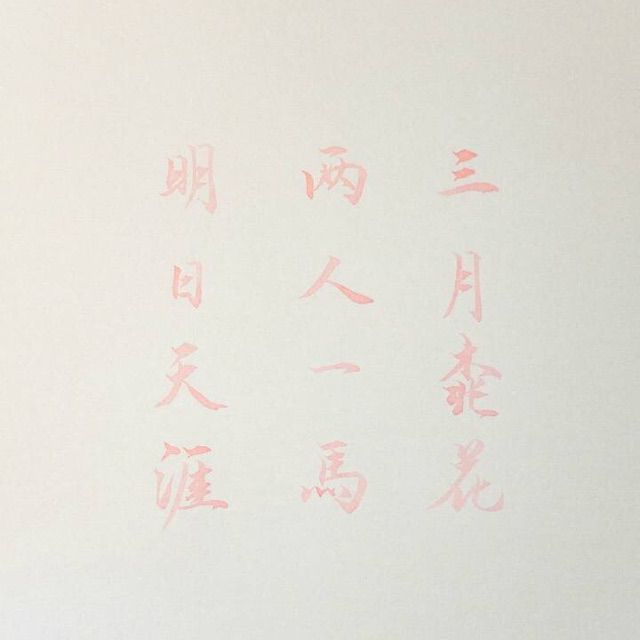 三月桃花
两人一馬
明日天涯